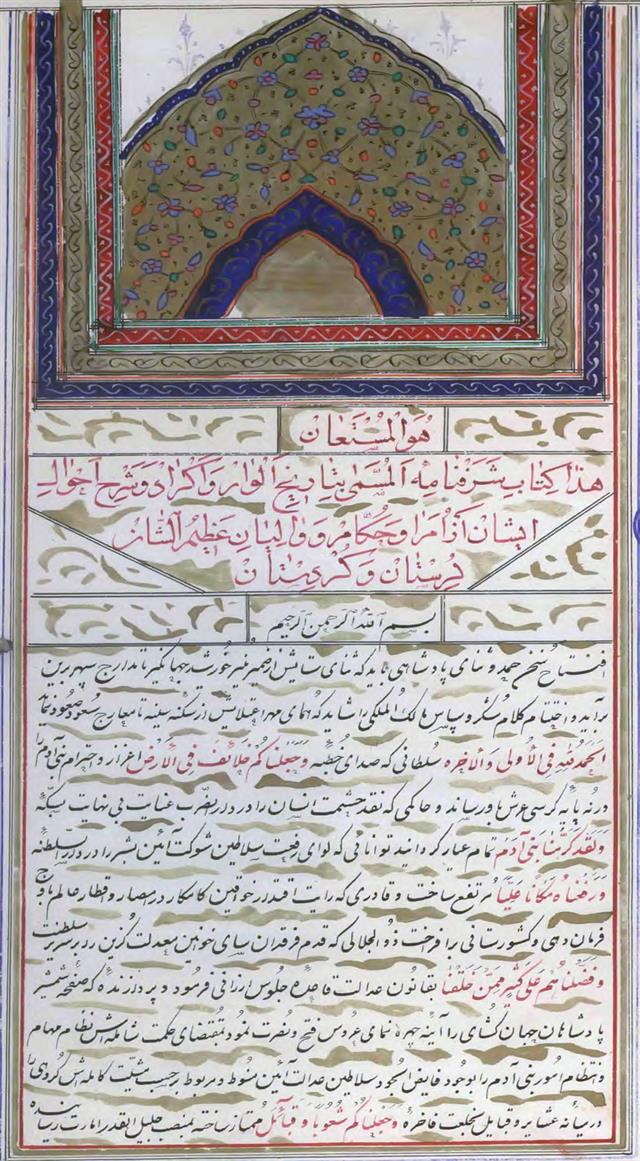 هو المستعان
هذا كتاب شرفنامه المسمی بتاریخ الوار و اکراد و شرح احوال
ایشان از امرا و حکام و والیان عظیم الشان
لرستان و کردستان
بسم الله الرحمن الرحیم
افتتاح سخن حمد و ثنای پادشاهی باید که ثنای ستایش از ضمیر منیر خورشید جهانگیر تا مدارج سپهر برین
برآید و اختتام کلام شکر و سپاس مالک الملکی را شاید که همای مهر اعتلایش از سکنه سینه تا معارج مسعود صعود نماید
الحمد لله فی الاولی والاخره سلطانی که صدای خطبه وجعلناکم خلائف فی الارض اعزاز و احترام بنی آدم را
درنه پایه کرسی عرش ماوی رساند و حاکمی که نقد حشمت انسان را در دار الضرب عنایت بی نهایت بسکّه
ولقد کرمنا بنی آدم تمام عیار گردانید توانائی که لوای رفعت سلاطین شوکت آئین بشر را در دار السلطنه
ورفعناه مکانا علیا مرتفع ساخت و قادری که رایت اقتدار خواقین کامکار در امصار و اقطار عالم باوج
فرمان دهی و کشورستانی را فرخت ذو الجلالی که قدم فرقدان سای خواقین معدلت گزین را بر سریر سلطنت
وفضلناهم علی کثیر ممن خلقنا بقانون عدالت قاعده جلوس ارزانی فرمود و پردازنده که صفحه شمشیر
پادشاهان جهان گشای را آینه چهره نمای عروس فتح و نصرت نمود بمقتضای حکمت شامله اش نظام مهام
و انتظام امور بنی آدم را بوجود فایض الجود سلاطین عدالت آئین منوط و مربوط بر حسب مشیّت کامله ش گروهی را
در میانه عشایر و قبایل بخلعت فاخره وجعلناکم شعوبا وقبائل ممتاز ساخته بمنصب جلیل القدر امارت رسانیده